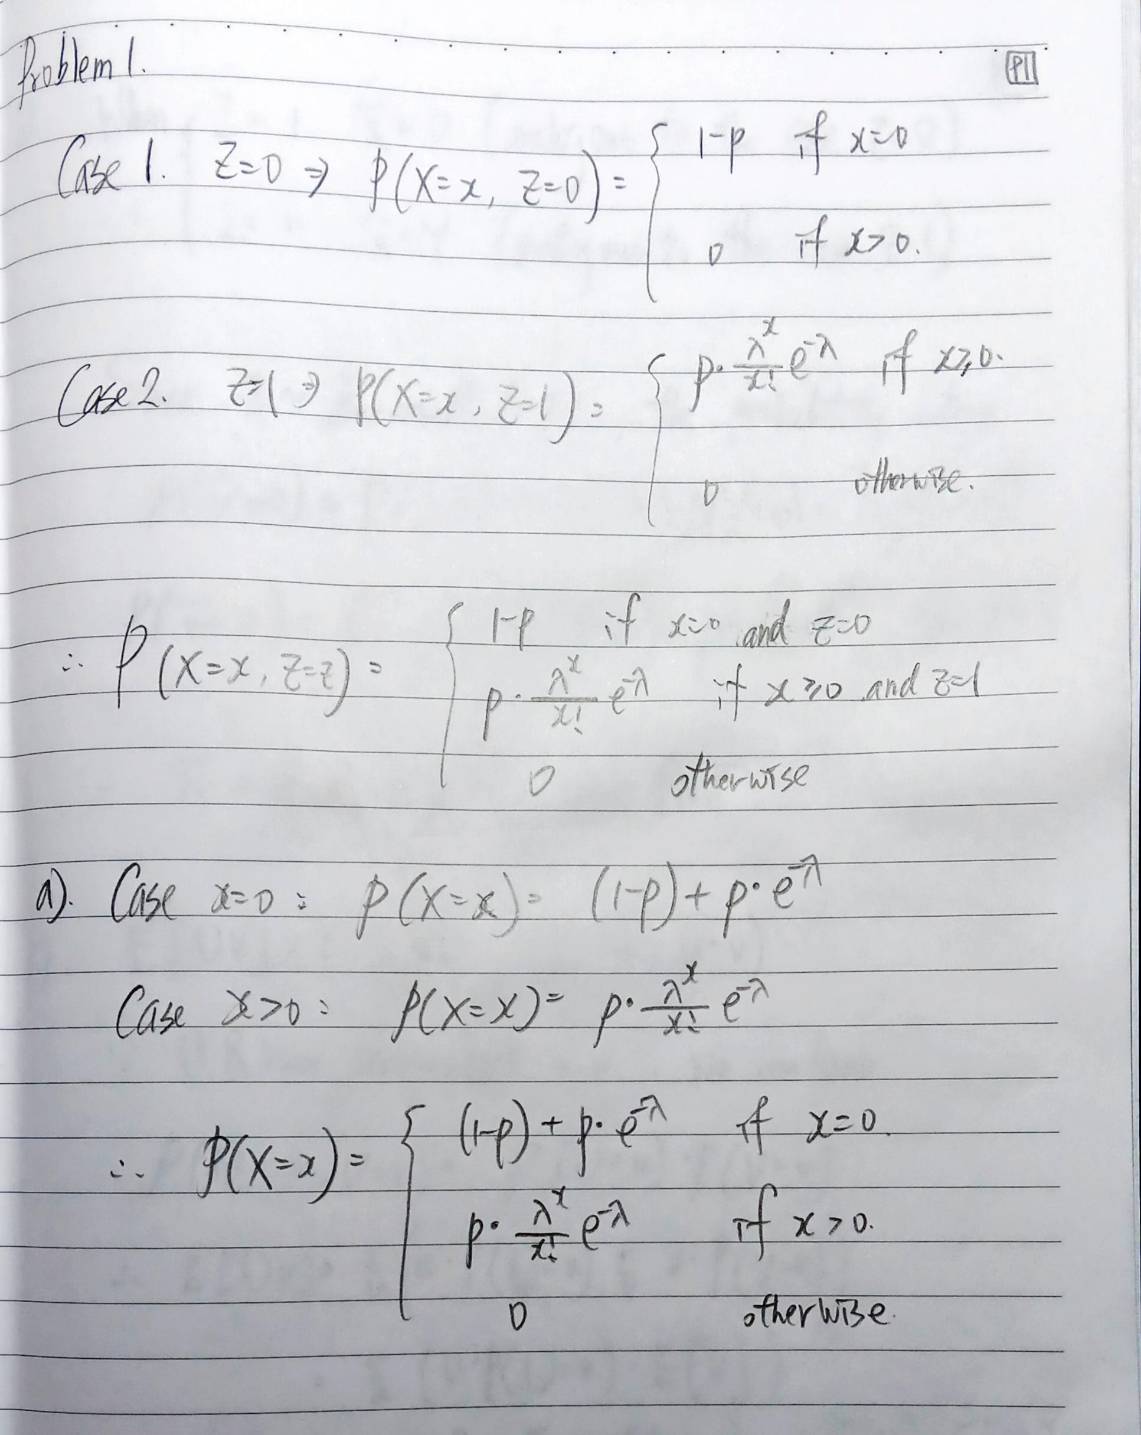 Problem 1.
P1
Case 1. Z=0 ⇒ P(X=x, Z=0) = { 1-p if x=0
0 if x>0.
Case 2. Z=1 ⇒ P(X=x, Z=1) = { p·λ^x/x! e^-λ if x≥0.
0 otherwise.
∴ P(X=x, Z=z) = { 1-p if x=0 and z=0
p·λ^x/x! e^-λ if x≥0 and z=1
0 otherwise
a). Case x=0 : P(X=x) = (1-p) + p·e^-λ
Case x>0 : P(X=x) = p·λ^x/x! e^-λ
∴ P(X=x) = { (1-p) + p·e^-λ if x=0.
p·λ^x/x! e^-λ if x>0.
0 otherwise.